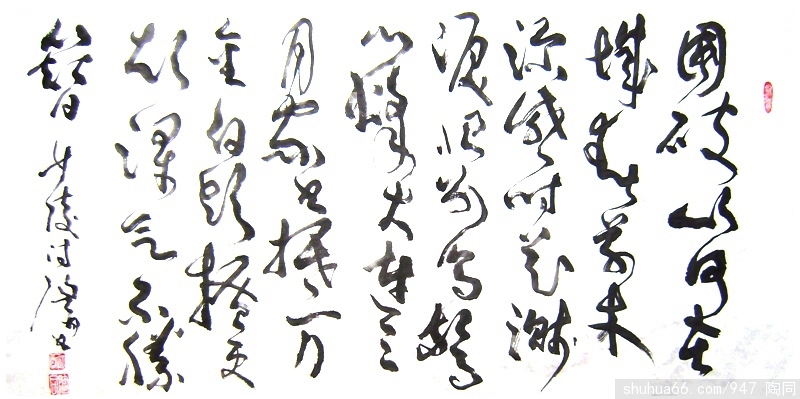 國破山河在
城春草木
深感時花濺
淚恨別鳥驚
心烽火連三
月家書抵万
金白頭搔更
短渾欲不勝
簪 少陵诗
shuhua66.com/947 陶同